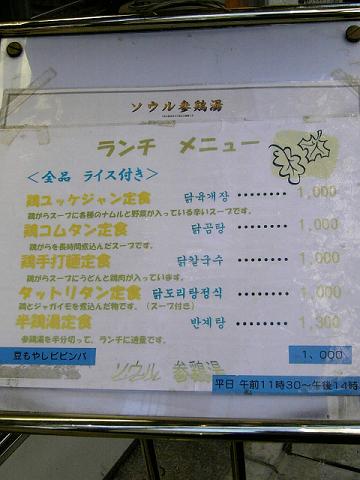 ソウル参鶏湯
ランチ メニュー
＜全品 ライス付き＞
鶏ユッケジャン定食 닭육개장 ········· 1,000
鶏がらスープに各種のナムルと野菜が入っている辛いスープです。
鶏コムタン定食 닭곰탕 ········· 1,000
鶏がらを長時間煮込んだスープです。
鶏手打麺定食 닭칼국수 ········· 1,000
鶏がらスープにうどんと鶏肉が入っています。
タットリタン定食 닭도리탕정식 ········· 1,000
鶏とジャガイモを煮込んだ物です。（スープ付き）
半鶏湯定食 반계탕 ········· 1,300
参鶏湯を半分切って、ランチに適量です。
豆もやしビビンバ 1，000
ソウル 参鶏湯
平日 午前11時30～午後14時